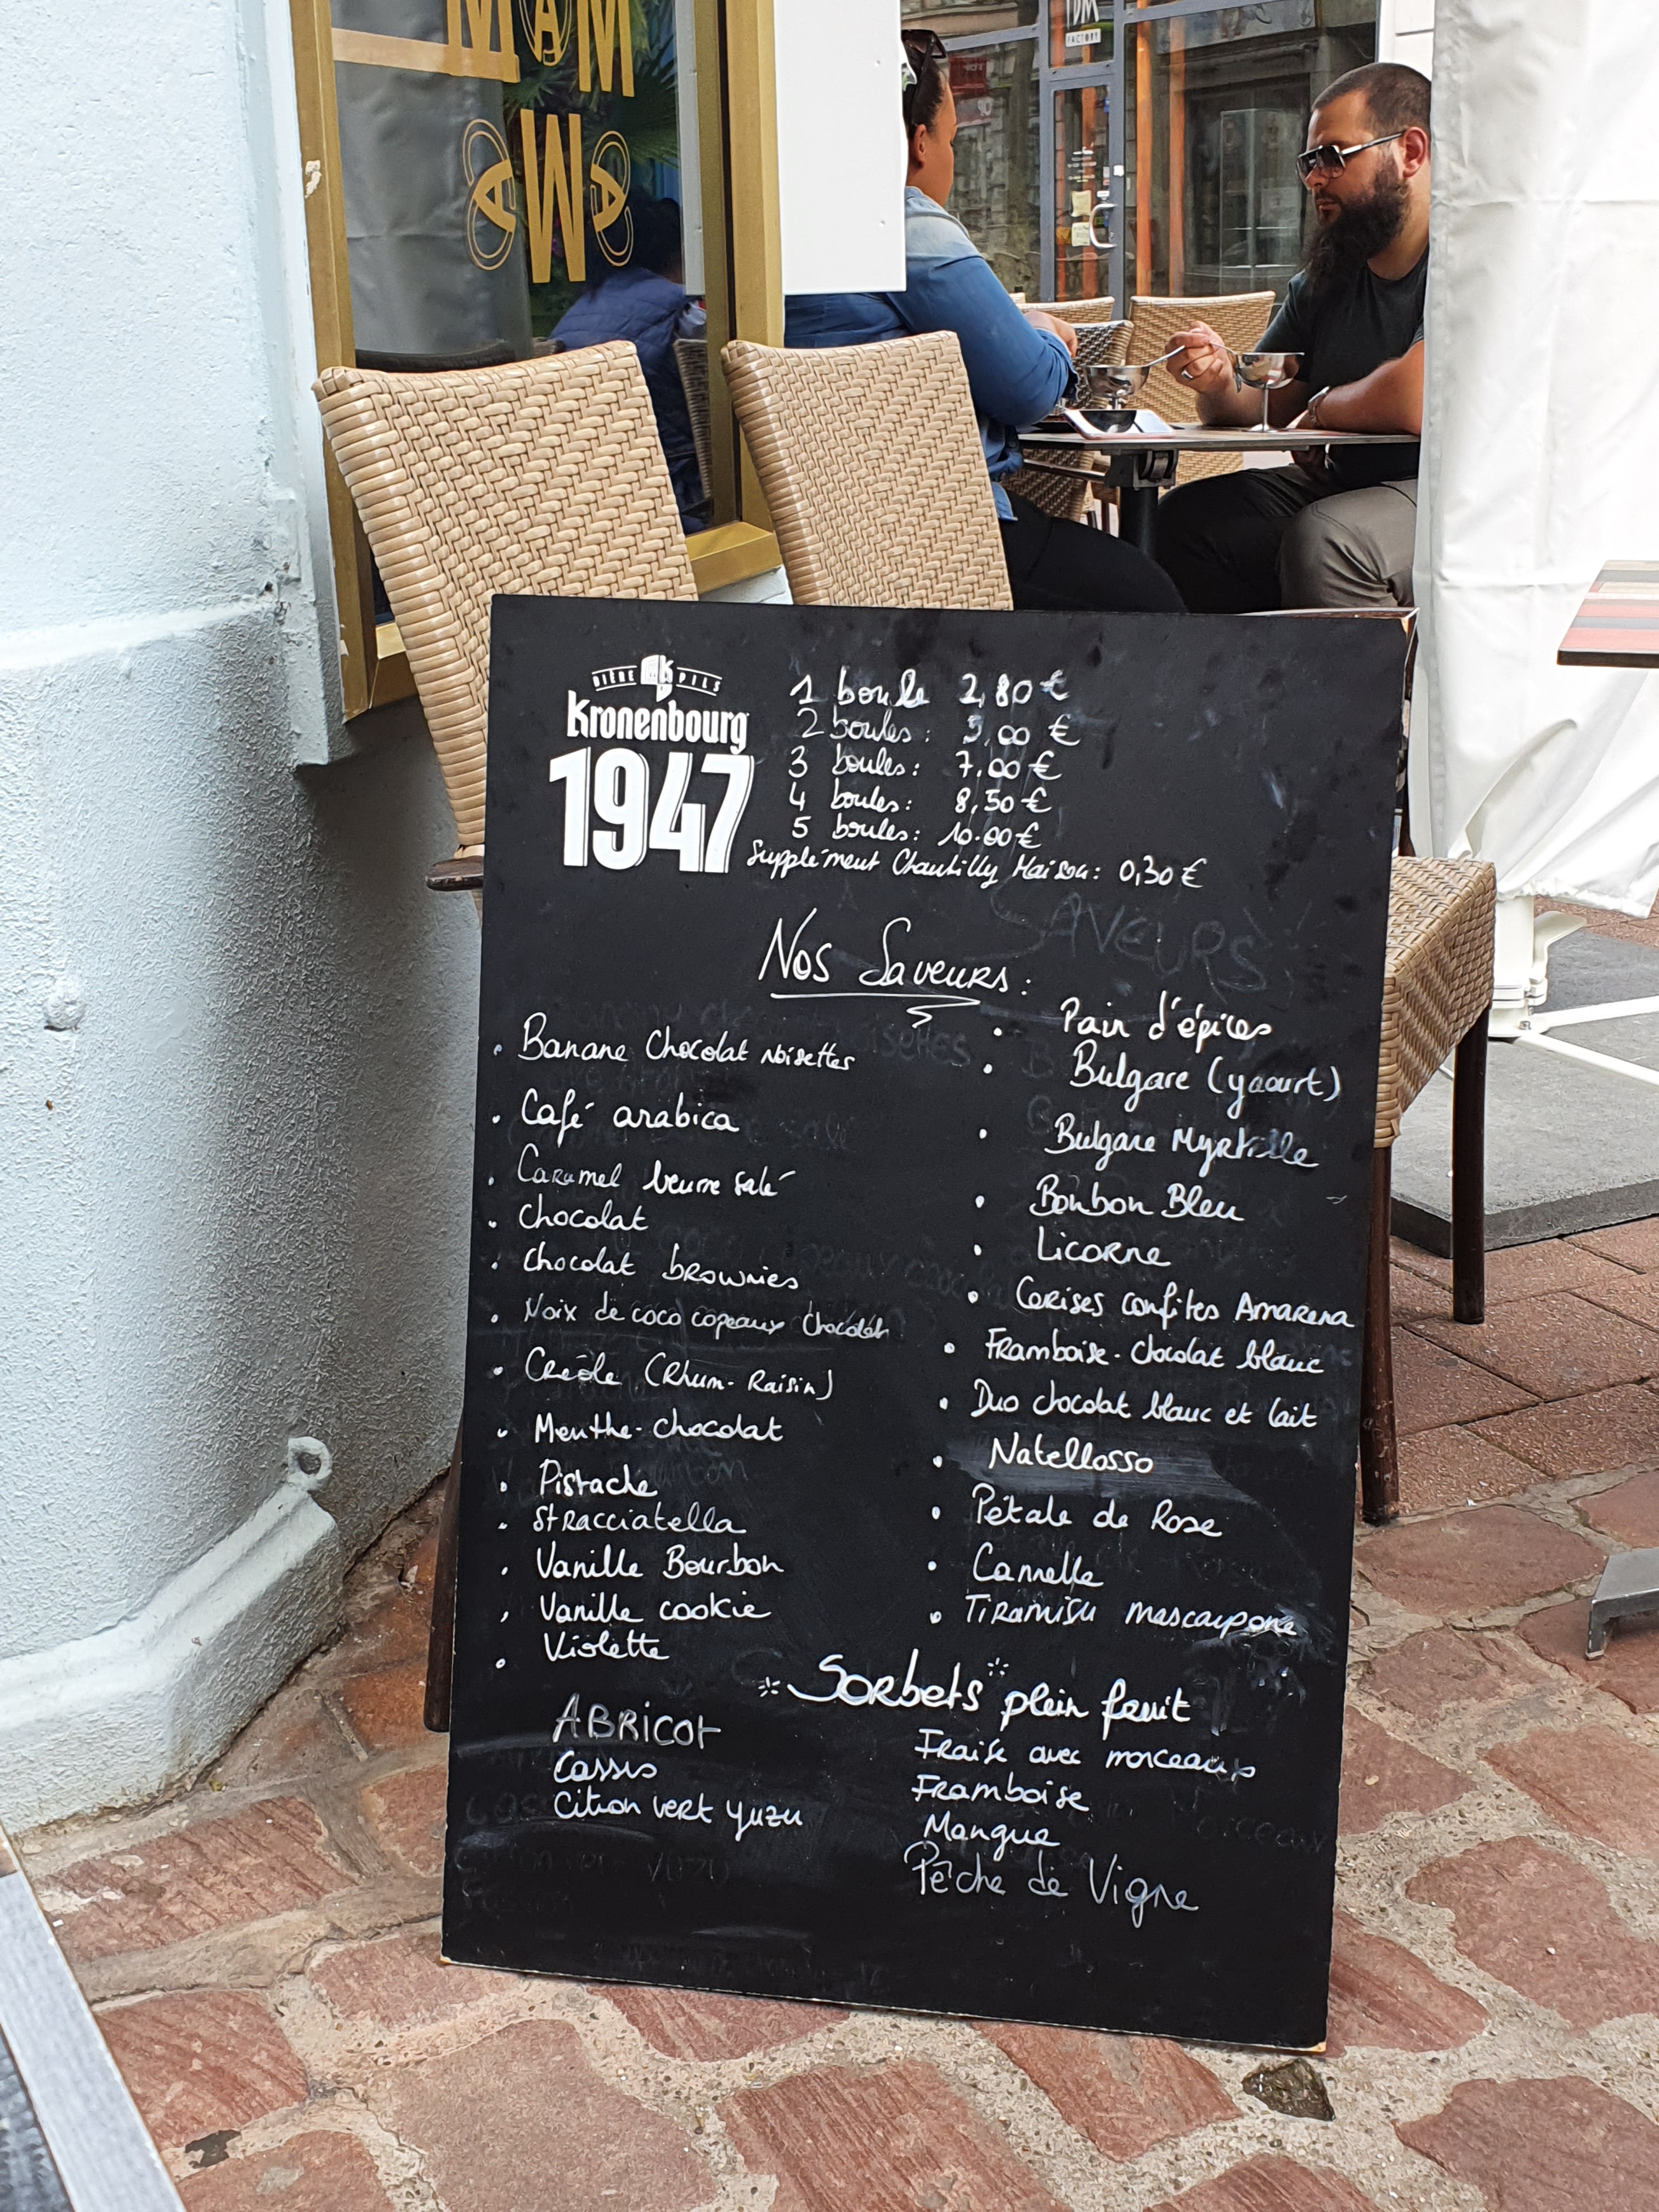 MAM
FACTORY
BIÈRE PILS
Kronenbourg
1947
1 boule 2,80 €
2 boules : 5,00 €
3 boules : 7,00 €
4 boules : 8,50 €
5 boules : 10.00 €
Supplément Chantilly Maison : 0,30 €
Nos Saveurs :
• Banane Chocolat Noisettes
• Café arabica
• Caramel beurre salé
• Chocolat
• Chocolat brownies
• Noix de coco copeaux chocolat
• Créole (Rhum-Raisin)
• Menthe-chocolat
• Pistache
• Stracciatella
• Vanille Bourbon
• Vanille cookie
• Violette
• Pain d'épices
• Bulgare (yaourt)
• Bulgare Myrtille
• Bonbon Bleu
• Licorne
• Cerises confites Amarena
• Framboise-Chocolat blanc
• Duo chocolat blanc et lait
• Natellosso
• Pétale de Rose
• Cannelle
• Tiramisu mascarpone
Sorbets plein fruit
ABRICOT
Cassis
Citron vert yuzu
Fraise avec morceaux
Framboise
Mangue
Pêche de Vigne